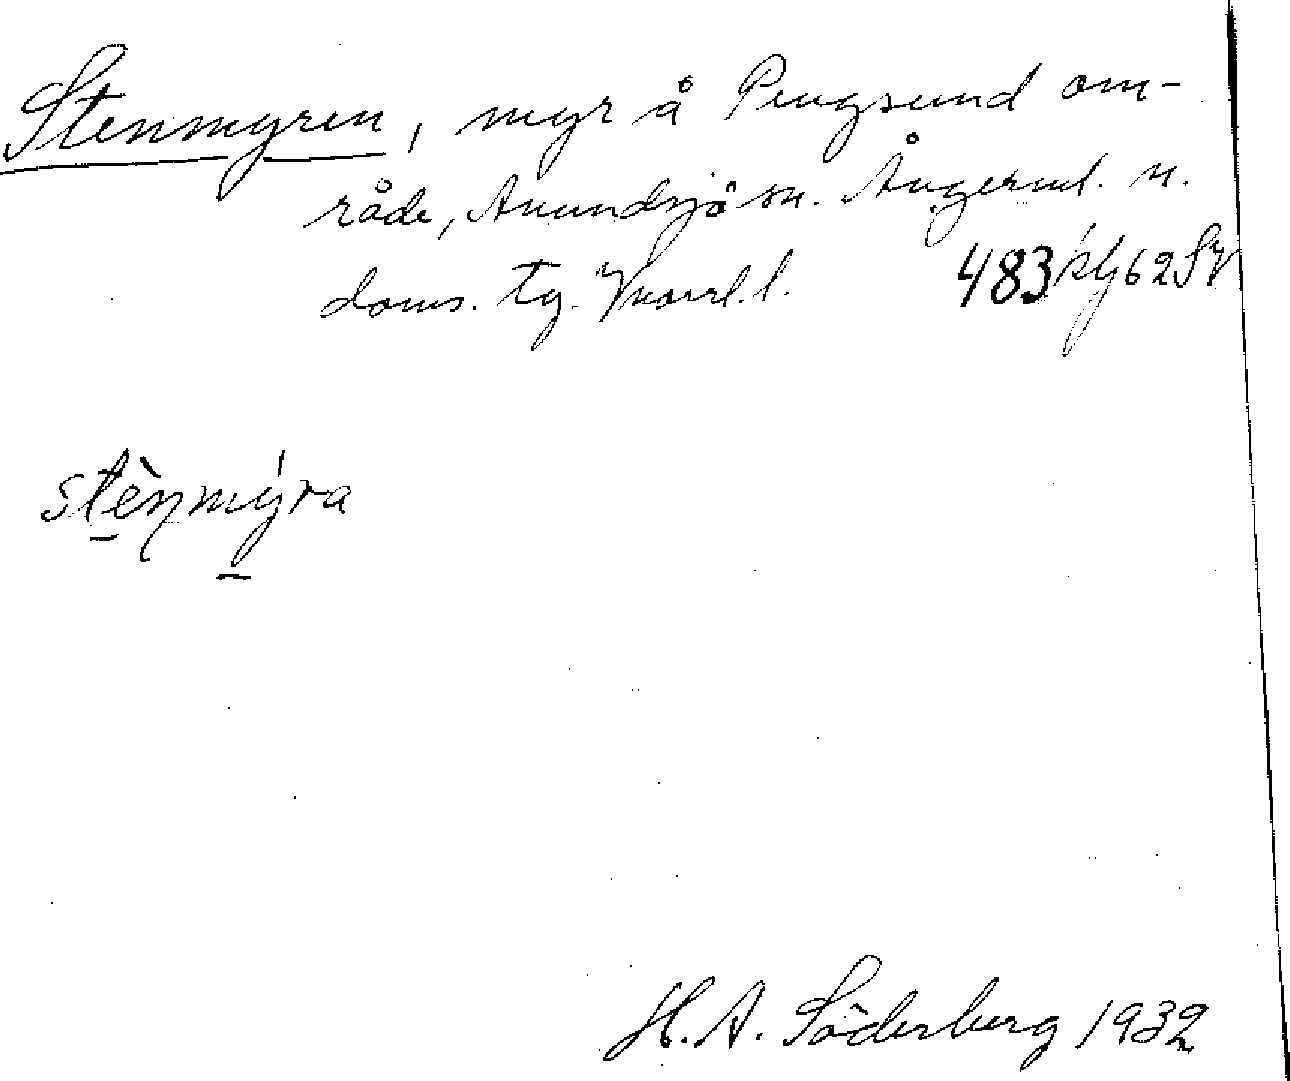 Stenmyren, myr å Pengsund om-
råde, Anundsjö sn. Ångerml. n.
doms. tg. Vnorrl. l. 483 klg 62 SV
stènmýra
H. A. Söderberg 1932